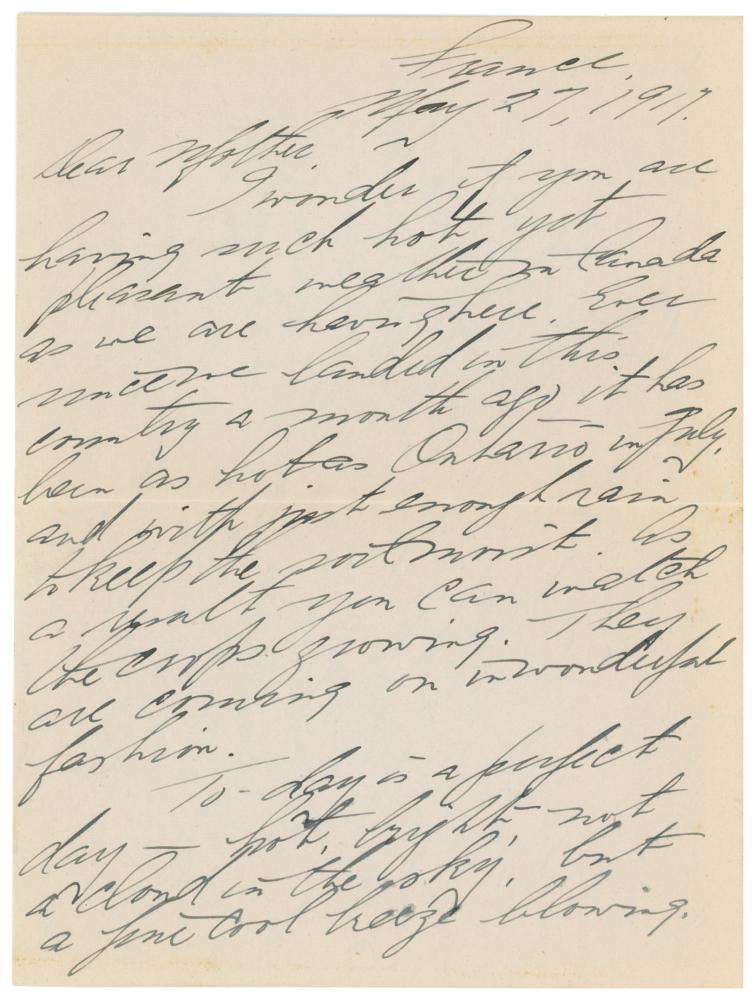 France,
May 27, 1917.
Dear Mother.
I wonder if you are
having such hot, yet
pleasant weather in Canada
as we are having here. Ever
since we landed in this
country a month ago it has
been as hot as Ontario in July,
and with just enough rain
to keep the soil moist. As
a result you can watch
the crops growing. They
are coming on in wonderful
fashion.
To-day is a perfect
day — hot, bright, not
a cloud in the sky, but
a fine cool breeze blowing.